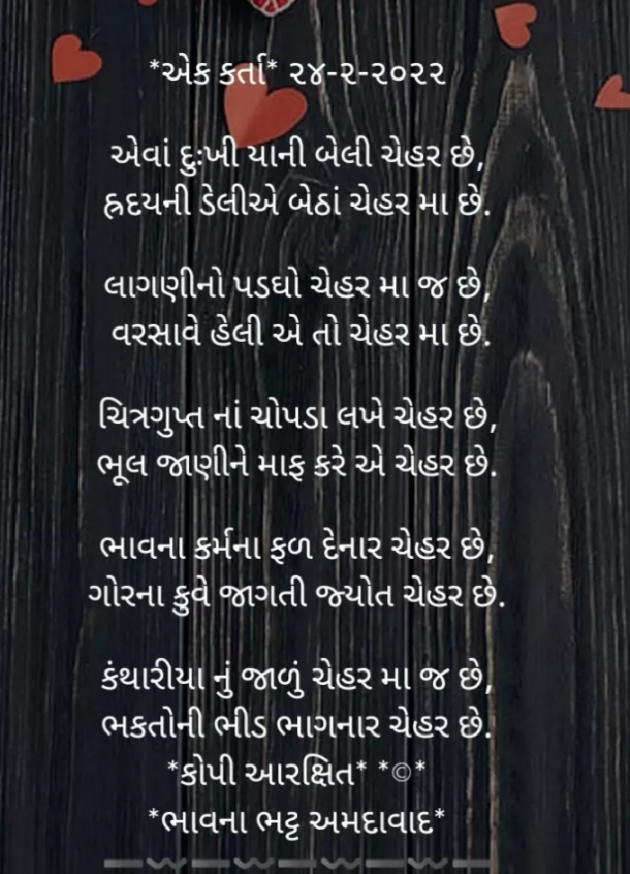 *એક કર્તા* ૨૪-૨-૨૦૨૨
એવાં દુઃખી યાની બેલી ચેહર છે,
હ્રદયની ડેલીએ બેઠાં ચેહર મા છે.
લાગણીનો પડઘો ચેહર મા જ છે,
વરસાવે હેલી એ તો ચેહર મા છે.
ચિત્રગુપ્ત નાં ચોપડા લખે ચેહર છે,
ભૂલ જાણીને માફ કરે એ ચેહર છે.
ભાવના કર્મના ફળ દેનાર ચેહર છે,
ગોરના કુવે જાગતી જ્યોત ચેહર છે.
કંથારીયા નું જાળું ચેહર મા જ છે,
ભકતોની ભીડ ભાગનાર ચેહર છે.
*કોપી આરક્ષિત* *©*
*ભાવના ભટ્ટ અમદાવાદ*